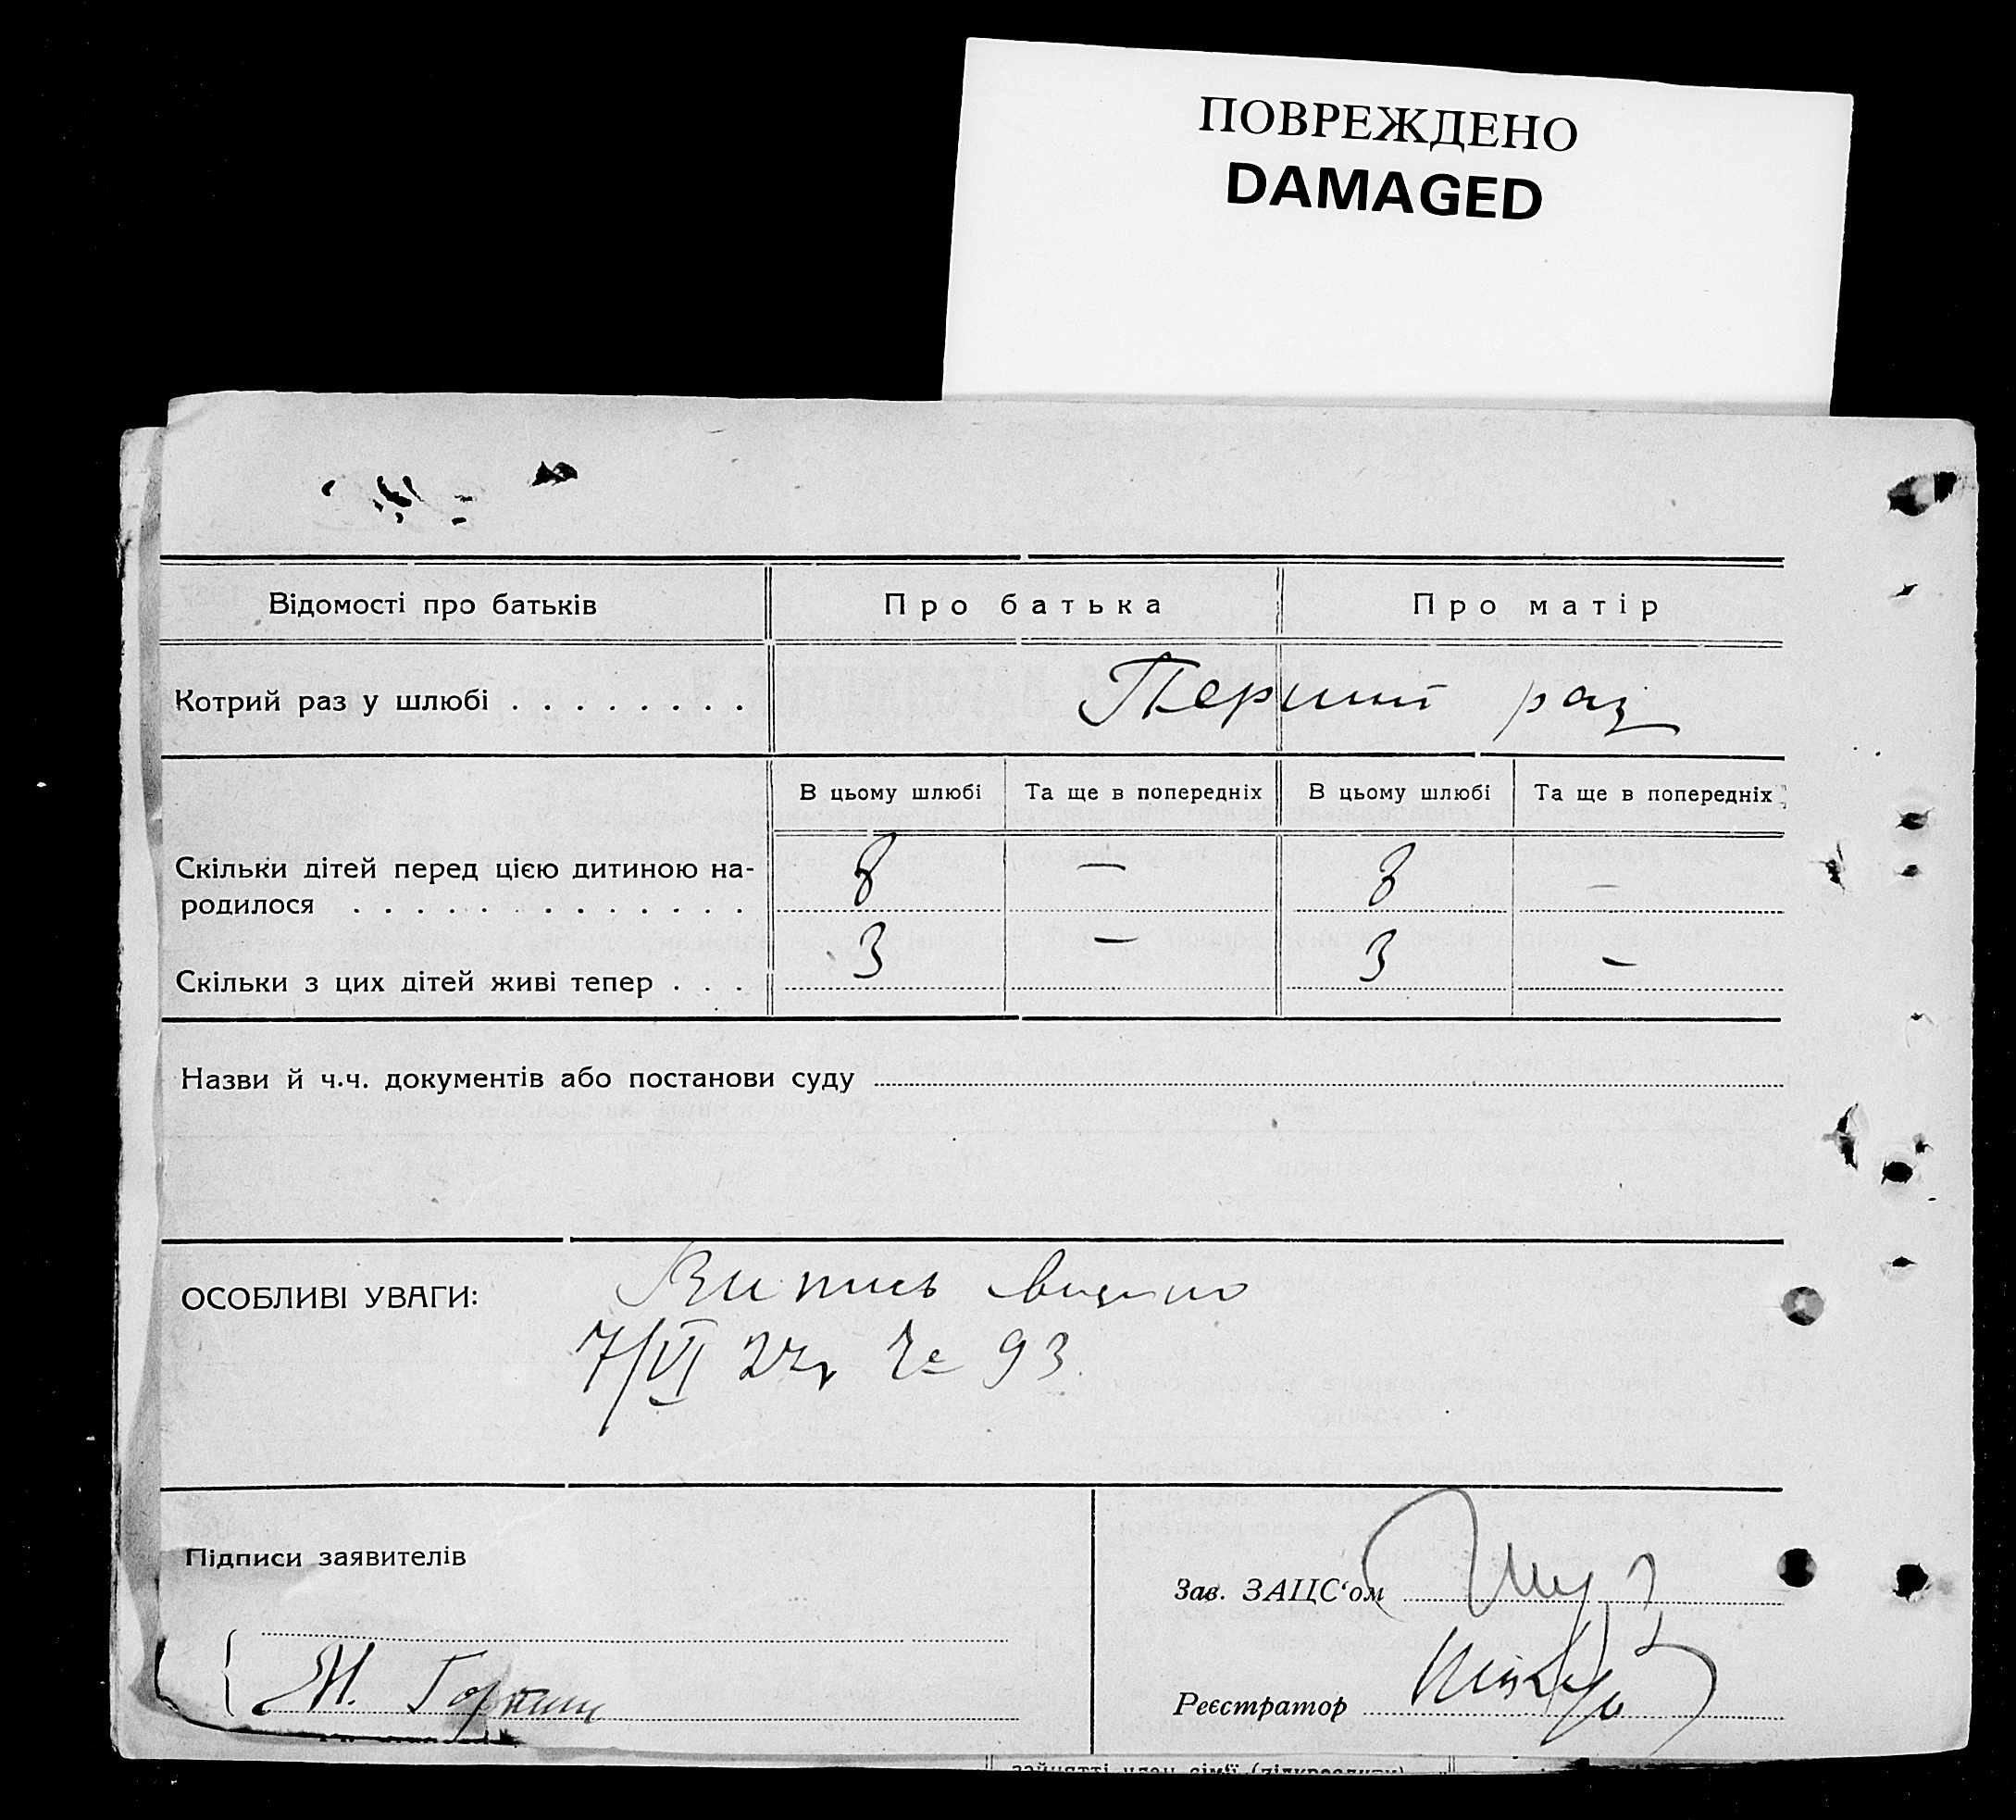 ПОВРЕЖДЕНО
DAMAGED
Відомості про батьків Про батька Про матір
Котрий раз у шлюбі . . . . . . . . Перший раз
В цьому шлюбі Та ще в попередніх В цьому шлюбі Та ще в попередніх
Скільки дітей перед цією дитиною на-
родилося . . . . . . . . . . . . . 8 — 8 —
Скільки з цих дітей живі тепер . . . 3 — 3 —
Назви й ч.ч. документів або постанови суду
ОСОБЛИВІ УВАГИ: Випись видано
7/VI 27г 93
Підписи заявителів
Зав. ЗАЦС‘ом
М.
Реєстратор